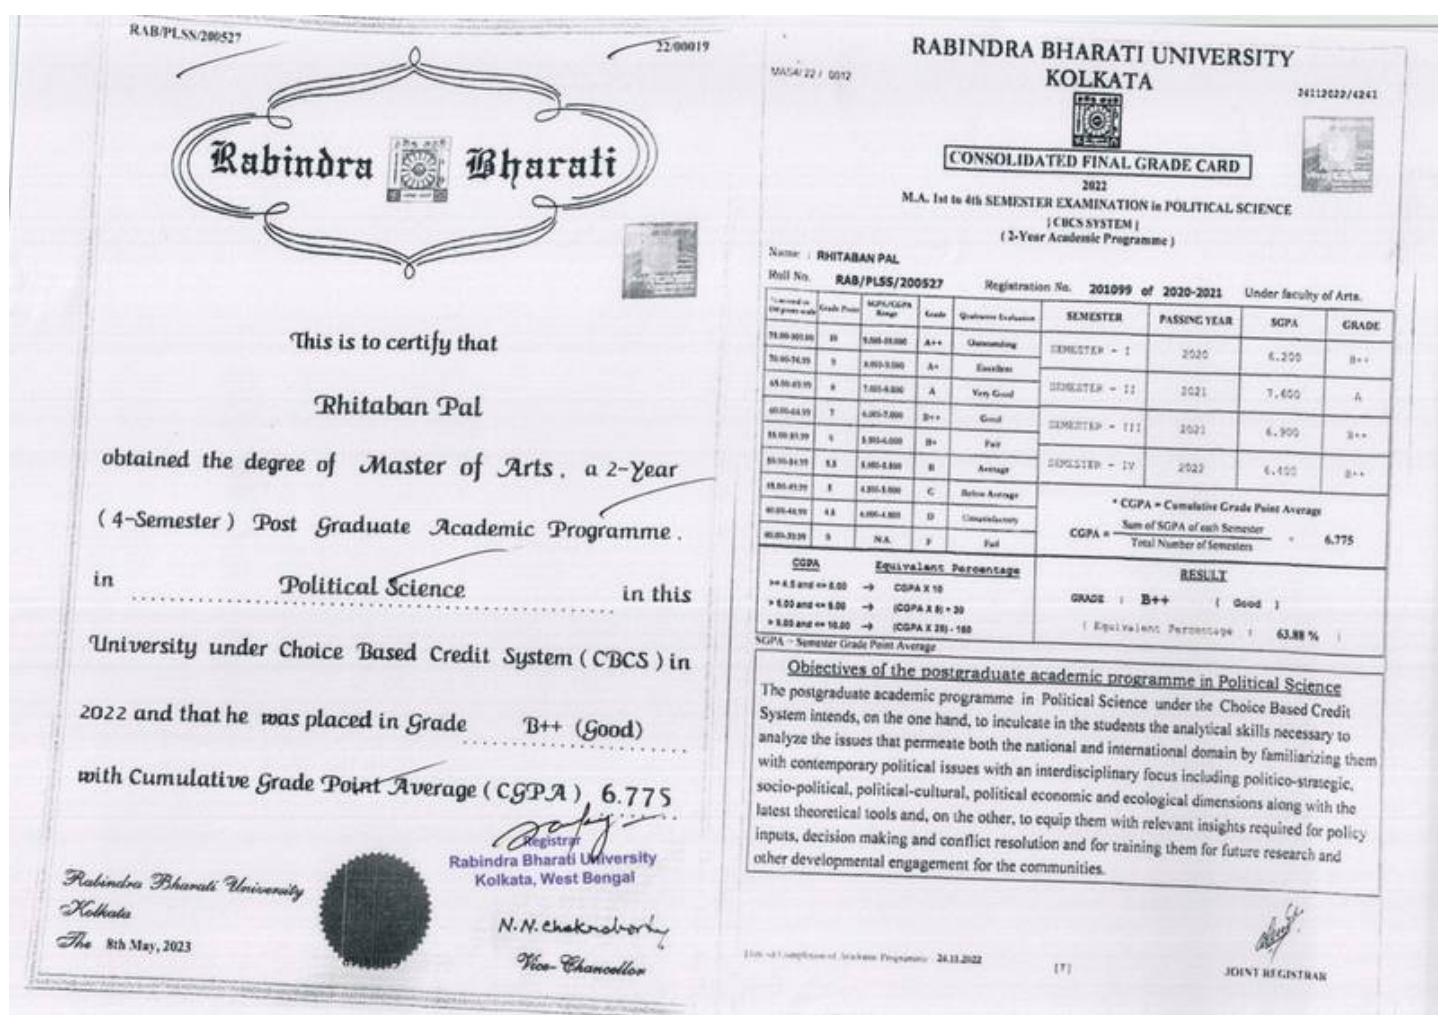 RAB/PLSS/200527
22/00019
Rabindra Bharati
This is to certify that
Rhitaban Pal
obtained the degree of Master of Arts, a 2-Year
(4-Semester) Post Graduate Academic Programme.
in Political Science in this
University under Choice Based Credit System (CBCS) in
2022 and that he was placed in Grade B++ (Good)
with Cumulative Grade Point Average (CGPA) 6.775
Registrar
Rabindra Bharati University
Kolkata, West Bengal
Rabindra Bharati University
Kolkata
The 8th May, 2023
N.N. Chakraborty
Vice-Chancellor
RABINDRA BHARATI UNIVERSITY
KOLKATA
22 / 0012
24112022/4241
CONSOLIDATED FINAL GRADE CARD
2022
M.A. 1st to 4th SEMESTER EXAMINATION in POLITICAL SCIENCE
[ CBCS SYSTEM ]
( 2-Year Academic Programme )
Name : RHITABAN PAL
Roll No. RAB/PLSS/200527 Registration No. 201099 of 2020-2021 Under faculty of Arts.
Grade Point SGPA/CGPA Range Grade Qualitative Evaluation
10 A++ Outstanding
9 A+ Excellent
8 A Very Good
7 B++ Good
6 B+ Fair
5.5 B Average
5 C Below Average
4.5 D Unsatisfactory
0 N.A. F Fail
SEMESTER PASSING YEAR SGPA GRADE
SEMESTER - I 2020 6.200 B++
SEMESTER - II 2021 7.600 A
SEMESTER - III 2021 6.900 B++
SEMESTER - IV 2022 6.400 B++
* CGPA = Cumulative Grade Point Average
CGPA = Sum of SGPA of each Semester
Total Number of Semesters
= 6.775
CGPA Equivalent Percentage
>= 4.5 and <= 6.00 → CGPA X 10
> 6.00 and <= 9.00 → (CGPA X 5) + 30
> 9.00 and <= 10.00 → (CGPA X 25) - 150
SGPA - Semester Grade Point Average
RESULT
GRADE : B++ ( Good )
( Equivalent Percentage : 63.88 % )
Objectives of the postgraduate academic programme in Political Science
The postgraduate academic programme in Political Science under the Choice Based Credit
System intends, on the one hand, to inculcate in the students the analytical skills necessary to
analyze the issues that permeate both the national and international domain by familiarizing them
with contemporary political issues with an interdisciplinary focus including politico-strategic,
socio-political, political-cultural, political economic and ecological dimensions along with the
latest theoretical tools and, on the other, to equip them with relevant insights required for policy
inputs, decision making and conflict resolution and for training them for future research and
other developmental engagement for the communities.
of Academic Programme 24.11.2022
[7]
JOINT REGISTRAR